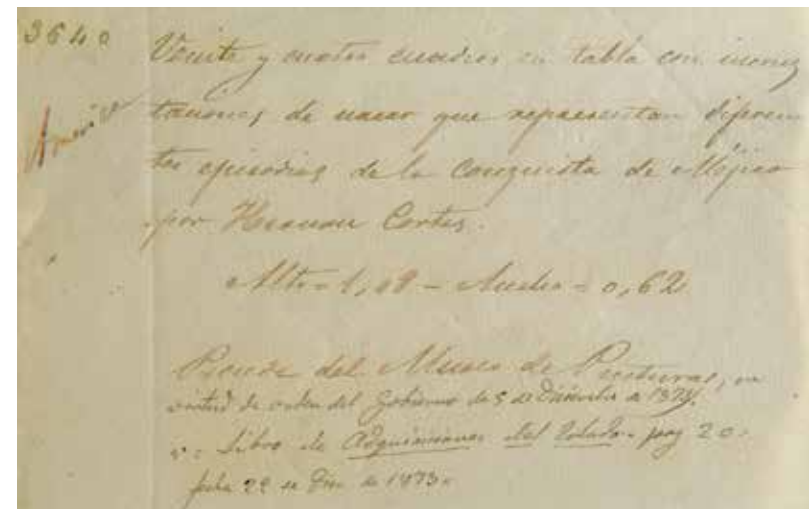 3640
America
Veinte y cuatro cuadros en tabla con incrus
taciones de nacar que representan diferen
tes episodios de la Conquista de Mejico
por Hernan Cortes.
Alto = 1,08 - Ancho = 0,62
Procede del Museo de Pinturas, en
virtud de orden del Gobierno de 5 de Diciembre de 1872.
v = Libro de Adquisiciones del Estado - pag 20.
fecha 22 de Dic. de 1873.